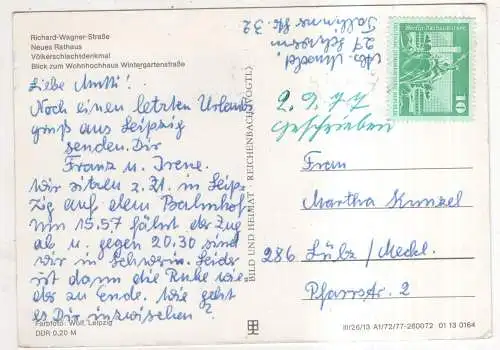 Richard-Wagner-Straße
Neues Rathaus
Völkerschlachtdenkmal
Blick zum Wohnhochhaus Wintergartenstraße
Liebe Mutti!
Noch einen letzten Urlaubs
gruß aus Leipzig
senden Dir
Franz u. Irene.
Wir sitzen z. Zt. in Leip-
zig auf dem Bahnhof
um 15.57 fährt der Zug
ab u. gegen 20.30 sind
wir in Schwerin. Leider
ist dann die Ruhe wie
der zu Ende. Wie geht
es Dir inzwischen?
Farbfoto: Wolf, Leipzig
DDR 0,20 M
BILD UND HEIMAT · REICHENBACH (VOGTL)
Abs.
27 Schwerin
Tallinner Str. 32
2.9.77
geschrieben
10
Frau
Martha Kunzel
286 Lübz/Meckl.
Pfarrstr. 2
III/26/13 A1/72/77-260072 01 13 0164